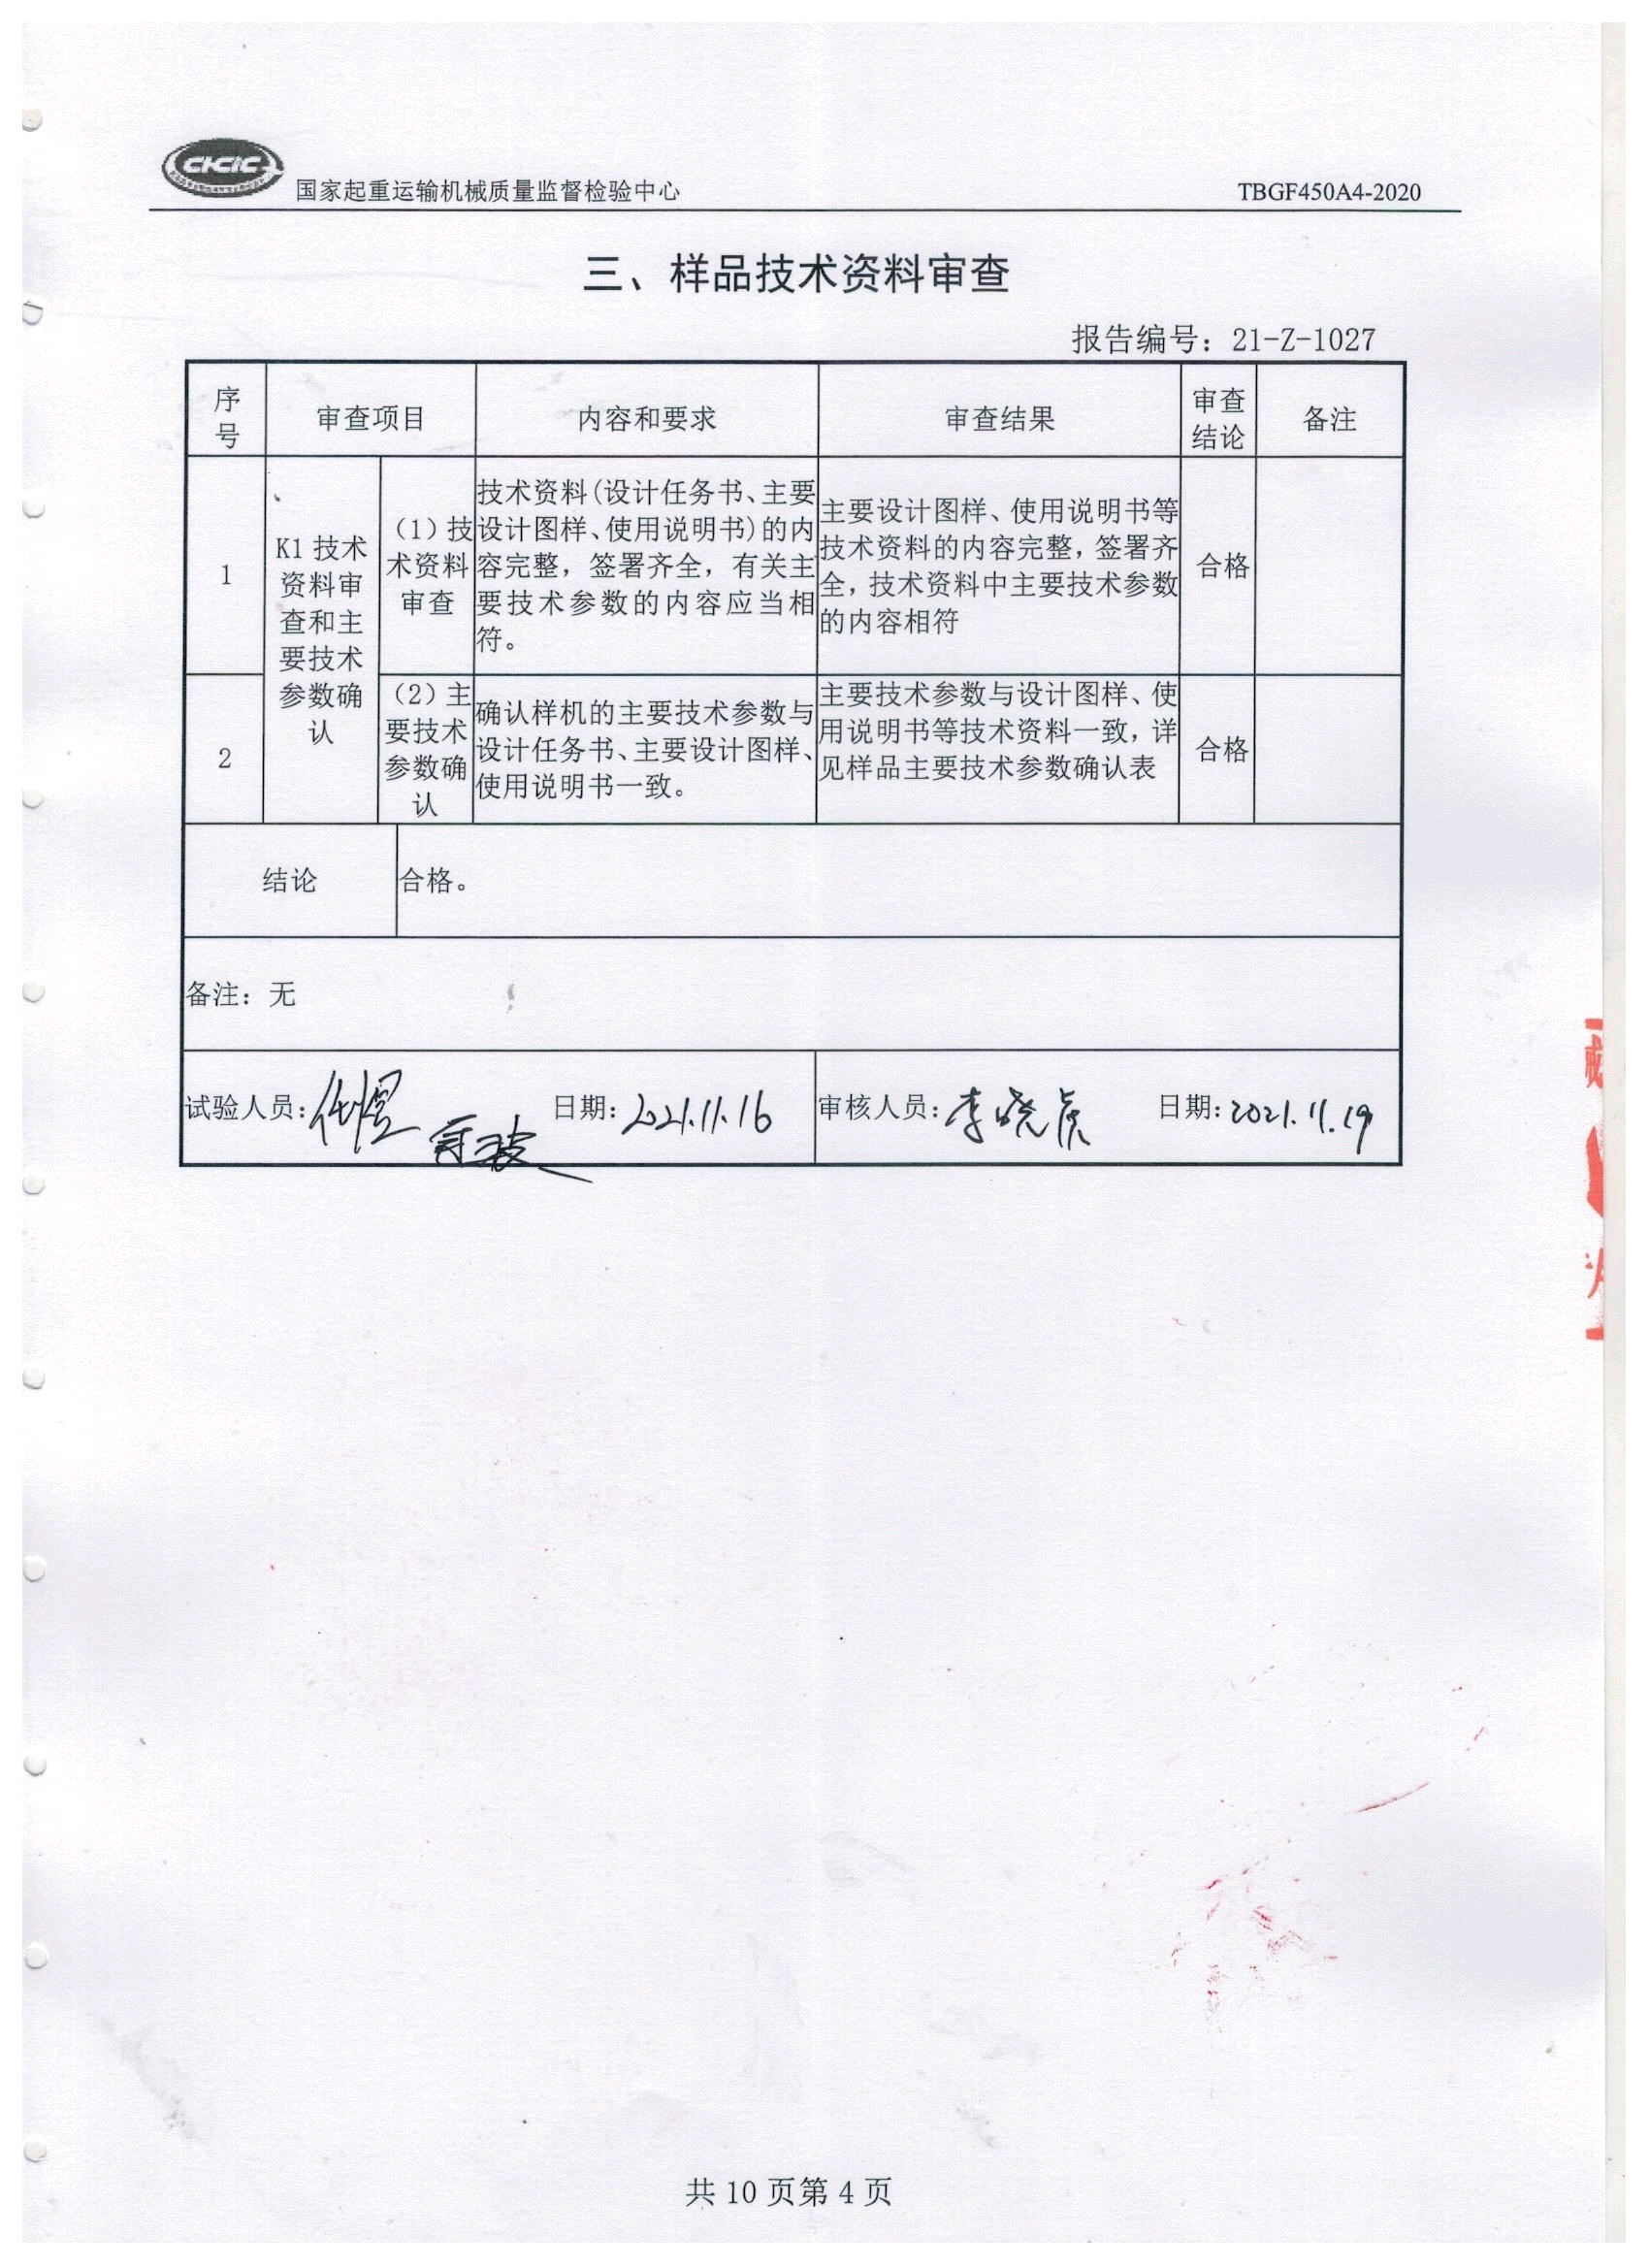 CKIC
国家起重运输机械质量监督检验中心
TBGF450A4-2020
三、样品技术资料审查
报告编号：21-Z-1027
序
号
审查项目
内容和要求
审查结果
审查
结论
备注
1
K1 技术
资料审
查和主
要技术
参数确
认
（1）技
术资料
审查
技术资料(设计任务书、主要
设计图样、使用说明书)的内
容完整，签署齐全，有关主
要技术参数的内容应当相
符。
主要设计图样、使用说明书等
技术资料的内容完整，签署齐
全，技术资料中主要技术参数
的内容相符
合格
2
（2）主
要技术
参数确
认
确认样机的主要技术参数与
设计任务书、主要设计图样、
使用说明书一致。
主要技术参数与设计图样、使
用说明书等技术资料一致，详
见样品主要技术参数确认表
合格
结论
合格。
备注：无
试验人员：
日期：2021.11.16
审核人员：李晓虎
日期：2021.11.19
共 10 页第 4 页